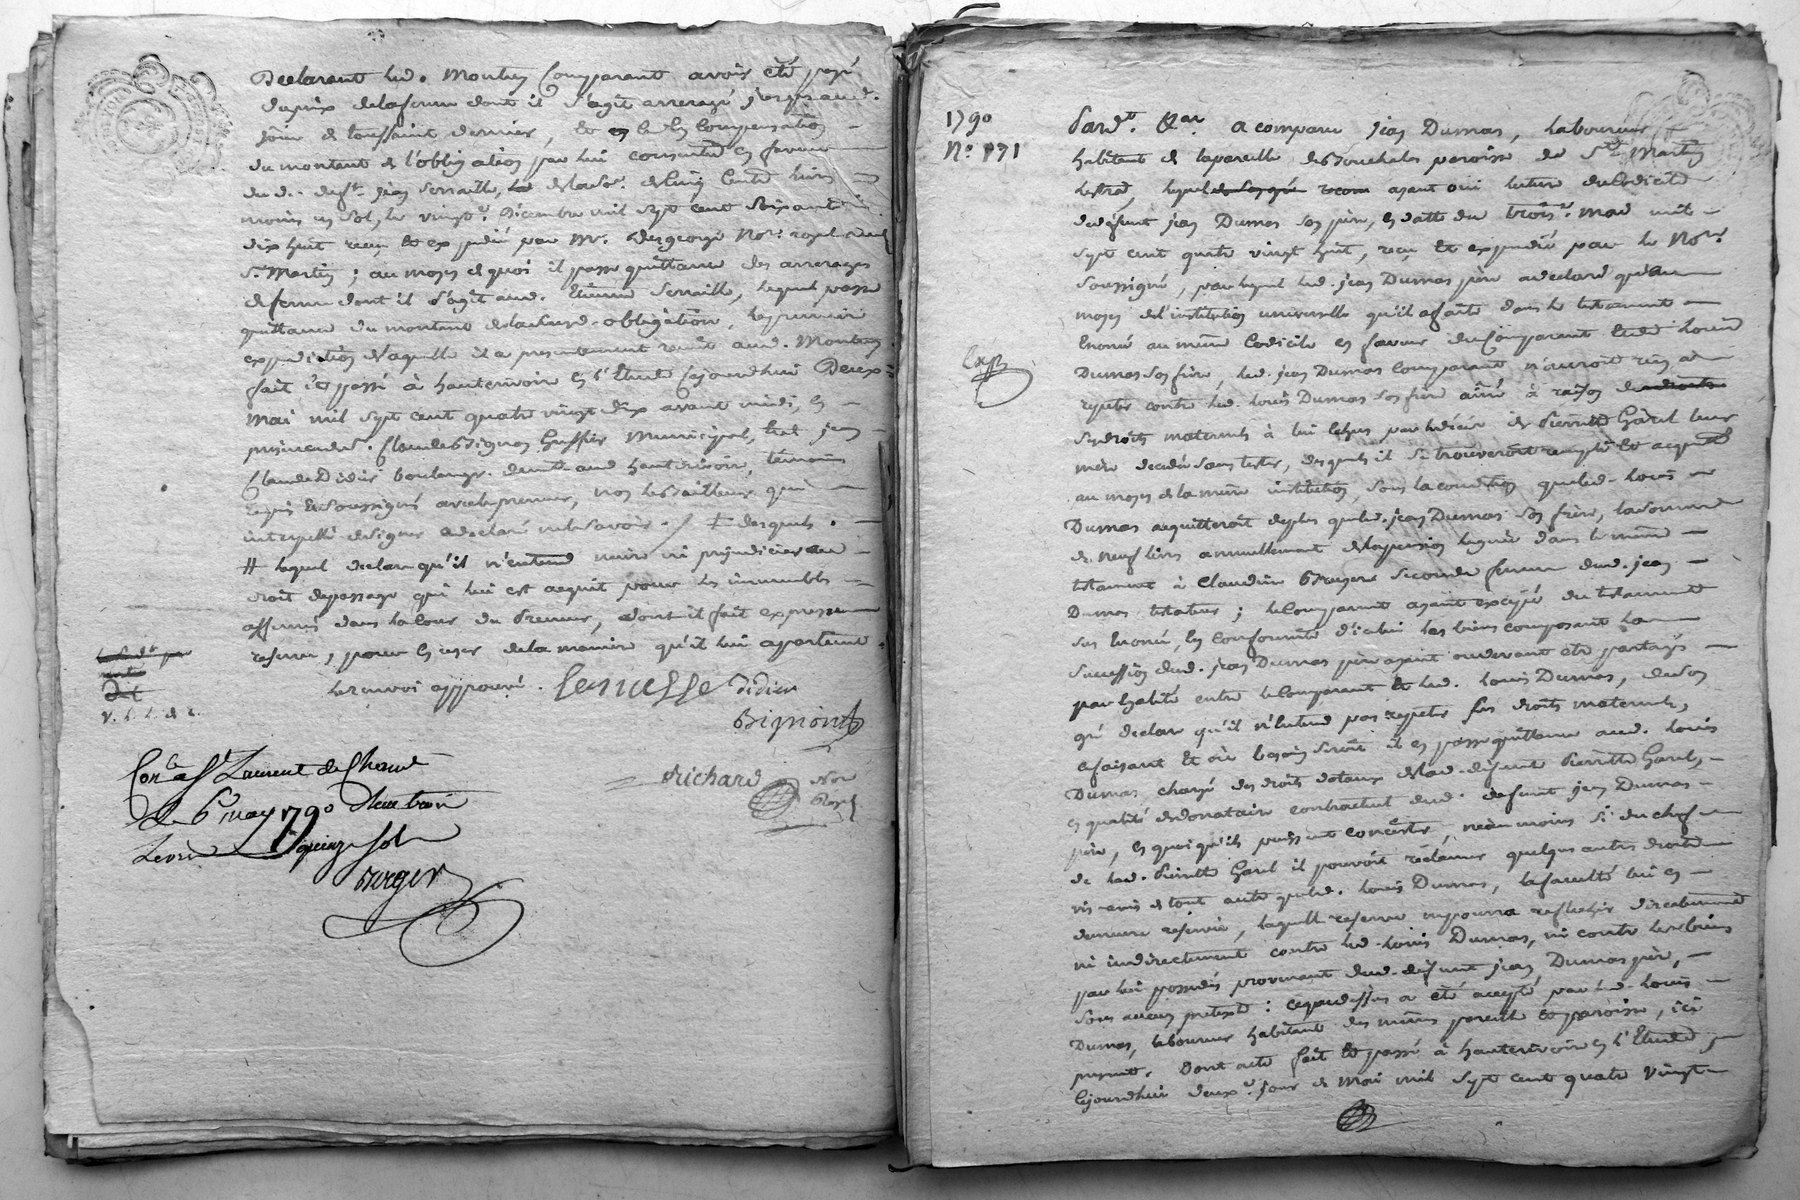 Declarant led. Montez Comparant avoir été payé
du prix de la ferme dont il s'agit arreragé jusqu'aud.
jour de toussaint dernier, et en la compensation
du montant de l'obligation par lui consentie en faveur
du d. deft. jean Serraille, de la so. de Cinq Cents livres
moins un sol, le vingt. Décembre mil sept cent soixante
dix huit reçue et expediée par Me. Desgeorge Nore. royal aud.
St. Martin ; au moyen de quoi il passe quittance des arrerages
de ferme dont il s'agit aud. Etienne Serraille, lequel passe
quittance du montant de lad. obligation, la premiere
expedition de laquelle il a presentement remise aud. Montez
fait et passé à hauterivoire en l'Etude Cejourdhui Deux
mai mil sept cent quatre vingt dix avant midi, en
presence de Sr. Claude Bignon Greffier Municipal, et de jean
Claude Didier boulanger demt. aud. hauterivoire, témoins
requis et soussignés avec le preneur, non le bailleur qui
interpellé de signer a declaré ne le savoir. / ‡ desquels.
# lequel declare qu'il n'entend nuire ni prejudicier au
droit de passage qui lui est acquit pour les immeubles
affermés dans la Cour du Preneur, dont il fait expresse
reserve, pour en user de la maniere qu'il lui appartient.
le renvoi approuvé. Didier
Richard Nore
Royal
Conle. a St. Laurent de Chamt.
Le 6 may 1790 Reçu trois
Livres quinze sols
Berger
1790
No. 171
Expé
Pardt. &ar. a comparu jean Dumas, laboureur
habitant de la parcelle des Bouchales paroisse de St. Martin
lestrad, lequel ayant oui lecture du Codicile
de defunt jean Dumas son père, en datte du trois. mai mil
sept cent quatre vingt huit, reçu et expedié par le Nore.
soussigné, par lequel led. jean Dumas père a declaré qu'au
moyen de l'institution universelle qu'il a faite dans le testament
Enoncé au même Codicile en faveur du Comparant Et de Louis
Dumas son frère, led. jean Dumas Comparant n'auroit rien à
repeter contre led. Louis Dumas son frère ainé à raison de
ses droits maternels à lui échus par le décès de Pierrette Garel leur
mère decedée sans tester, desquels il se trouveroit rempli et acquitté
au moyen de la même institution, sous la condition que led. Louis
Dumas acquitteroit de plus que led. jean Dumas son frère, la somme
de neuf livres annuellement de la pension leguée dans le même
testament à Claudine Bruyere seconde femme dud. jean
Dumas testateur ; le Comparant ayant excipé du testament
sus Enoncé, en conformité d'icelui les biens composant la
succession dud. jean Dumas père ayant cidevant été partagés
par égalité entre le Comparant Et led. Louis Dumas, de son
gré declare qu'il n'entend pas repeter ses droits maternels,
ce faisant Et où besoin seroit il en passe quittance aud. Louis
Dumas chargé des droits dotaux de lad. defunte Pierrette Garel,
en qualité de donataire contractuel dud. defunt jean Dumas
père, en quoi qu'ils puissent consister, néanmoins si du chef
de lad. Pierrette Garel il pouvoit réclamer quelques autres droits
vis-avis de tout autre que led. Louis Dumas, la faculté lui en
demeure reservée, laquelle reserve ne pourra reflechir directement
ni indirectement contre led. Louis Dumas, ni contre les biens
par lui possedés provenant dud. defunt jean Dumas père,
sous aucun pretexte : ce que dessus a été accepté par led. Louis
Dumas, laboureur habitant des mêmes parcelle et paroisse, ici
present. Dont acte fait et passé à hauterivoire en l'Etude
Cejourdhui deux. jour de mai mil sept cent quatre vingt